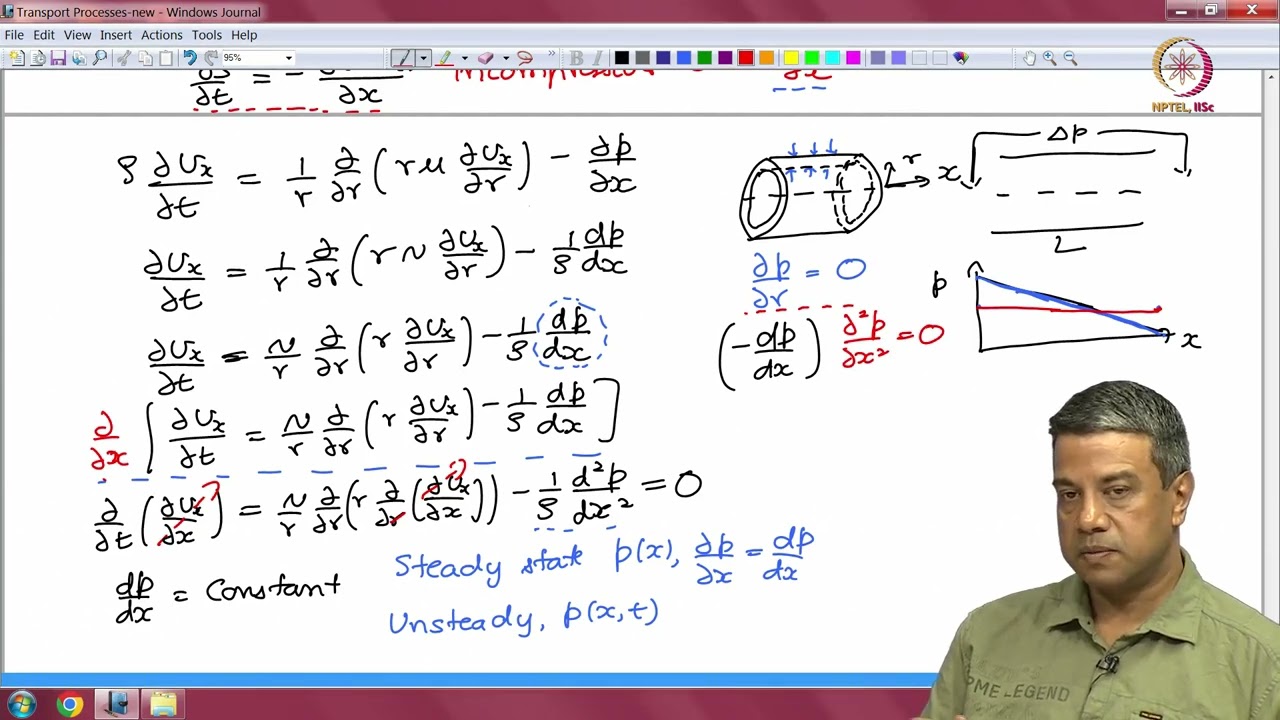 Transport Processes-new - Windows Journal
File Edit View Insert Actions Tools Help
95%
NPTEL, IISc
∂t = - ∂x
∂x
ρ ∂Ux/∂t = 1/r ∂/∂r (rμ ∂Ux/∂r) - ∂p/∂x
∂Ux/∂t = 1/r ∂/∂r (r ν ∂Ux/∂r) - 1/ρ dp/dx
∂Ux/∂t = ν/r ∂/∂r (r ∂Ux/∂r) - 1/ρ dp/dx
∂/∂x [∂Ux/∂t = ν/r ∂/∂r (r ∂Ux/∂r) - 1/ρ dp/dx]
∂/∂t (∂Ux/∂x) = ν/r ∂/∂r (r ∂/∂r (∂Ux/∂x)) - 1/ρ d²p/dx² = 0
dp/dx = Constant
Steady state p(x), ∂p/∂x = dp/dx
Unsteady, p(x,t)
r
x
Δp
L
∂p/∂r = 0
(-dp/dx) ∂²p/∂x² = 0
p
x